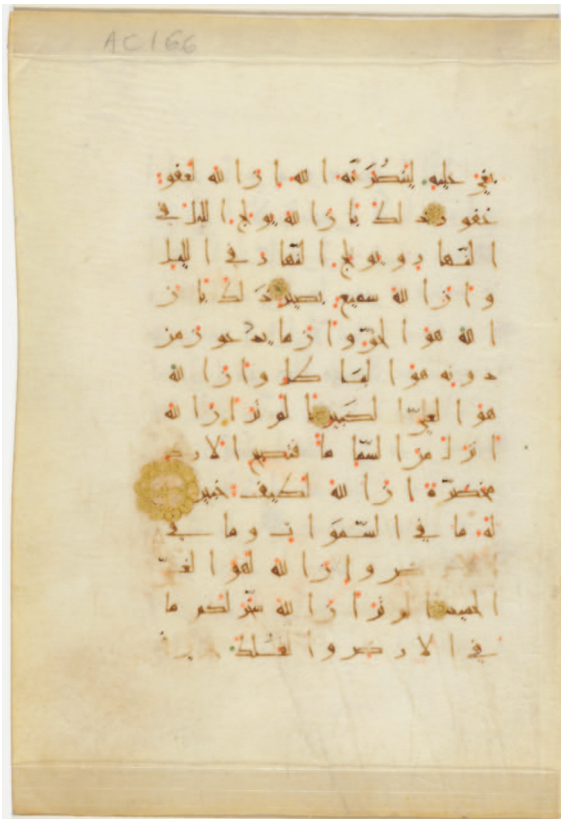 AC166
بغي عليه لينصرنه الله ان الله لعفو
غفور ذلك بان الله يولج الليل في
النهار ويولج النهار في الليل
وان الله سميع بصير ذلك بان
الله هو الحق وان ما يدعون من
دونه هو الباطل وان الله
هو العلي الكبير الم تر ان الله
انزل من السما ما فتصبح الارض
مخضرة ان الله لطيف خبير
له ما في السموات وما في
وان الله لهو الغني
الحميد الم تر ان الله سخر لكم ما
في الارض والفلك